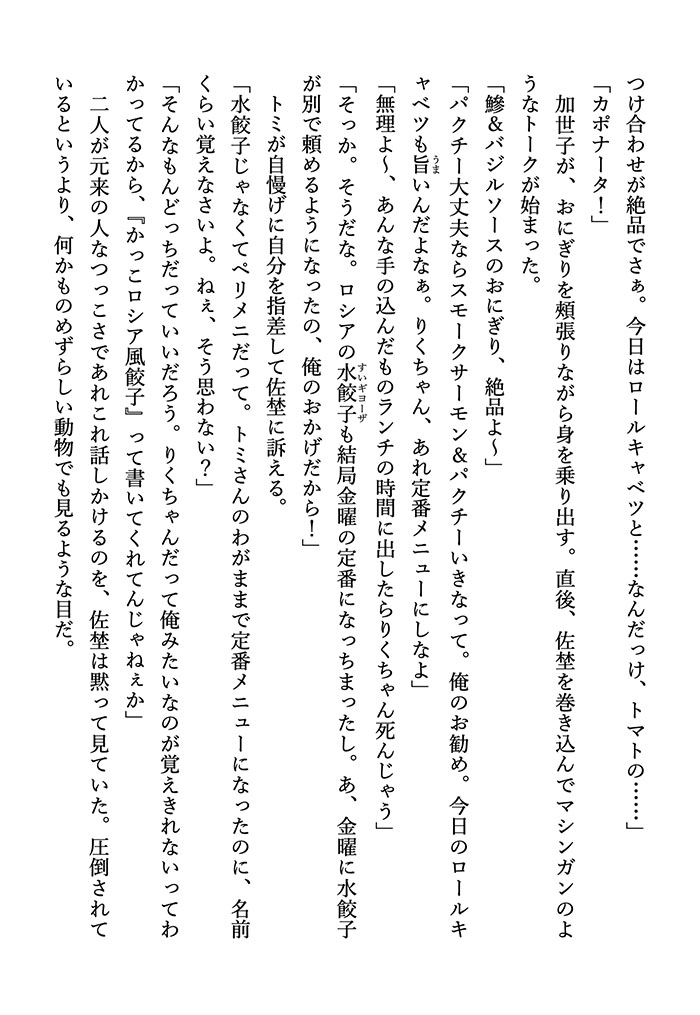 つけ合わせが絶品でさぁ。今日はロールキャベツと……なんだっけ、トマトの……」
「カポナータ！」
　加世子が、おにぎりを頰張りながら身を乗り出す。直後、佐埜を巻き込んでマシンガンのよ
うなトークが始まった。
「鰺＆バジルソースのおにぎり、絶品よ〜」
「パクチー大丈夫ならスモークサーモン＆パクチーいきなって。俺のお勧め。今日のロールキ
ャベツも旨いんだよなぁ。りくちゃん、あれ定番メニューにしなよ」
うま
「無理よ〜、あんな手の込んだものランチの時間に出したらりくちゃん死んじゃう」
「そっか。そうだな。ロシアの水餃子も結局金曜の定番になっちまったし。あ、金曜に水餃子
すいギョーザ
が別で頼めるようになったの、俺のおかげだから！」
　トミが自慢げに自分を指差して佐埜に訴える。
「水餃子じゃなくてペリメニだって。トミさんのわがままで定番メニューになったのに、名前
くらい覚えなさいよ。ねぇ、そう思わない？」
「そんなもんどっちだっていいだろう。りくちゃんだって俺みたいなのが覚えきれないってわ
かってるから、『かっこロシア風餃子』って書いてくれてんじゃねぇか」
　二人が元来の人なつっこさであれこれ話しかけるのを、佐埜は黙って見ていた。圧倒されて
いるというより、何かものめずらしい動物でも見るような目だ。